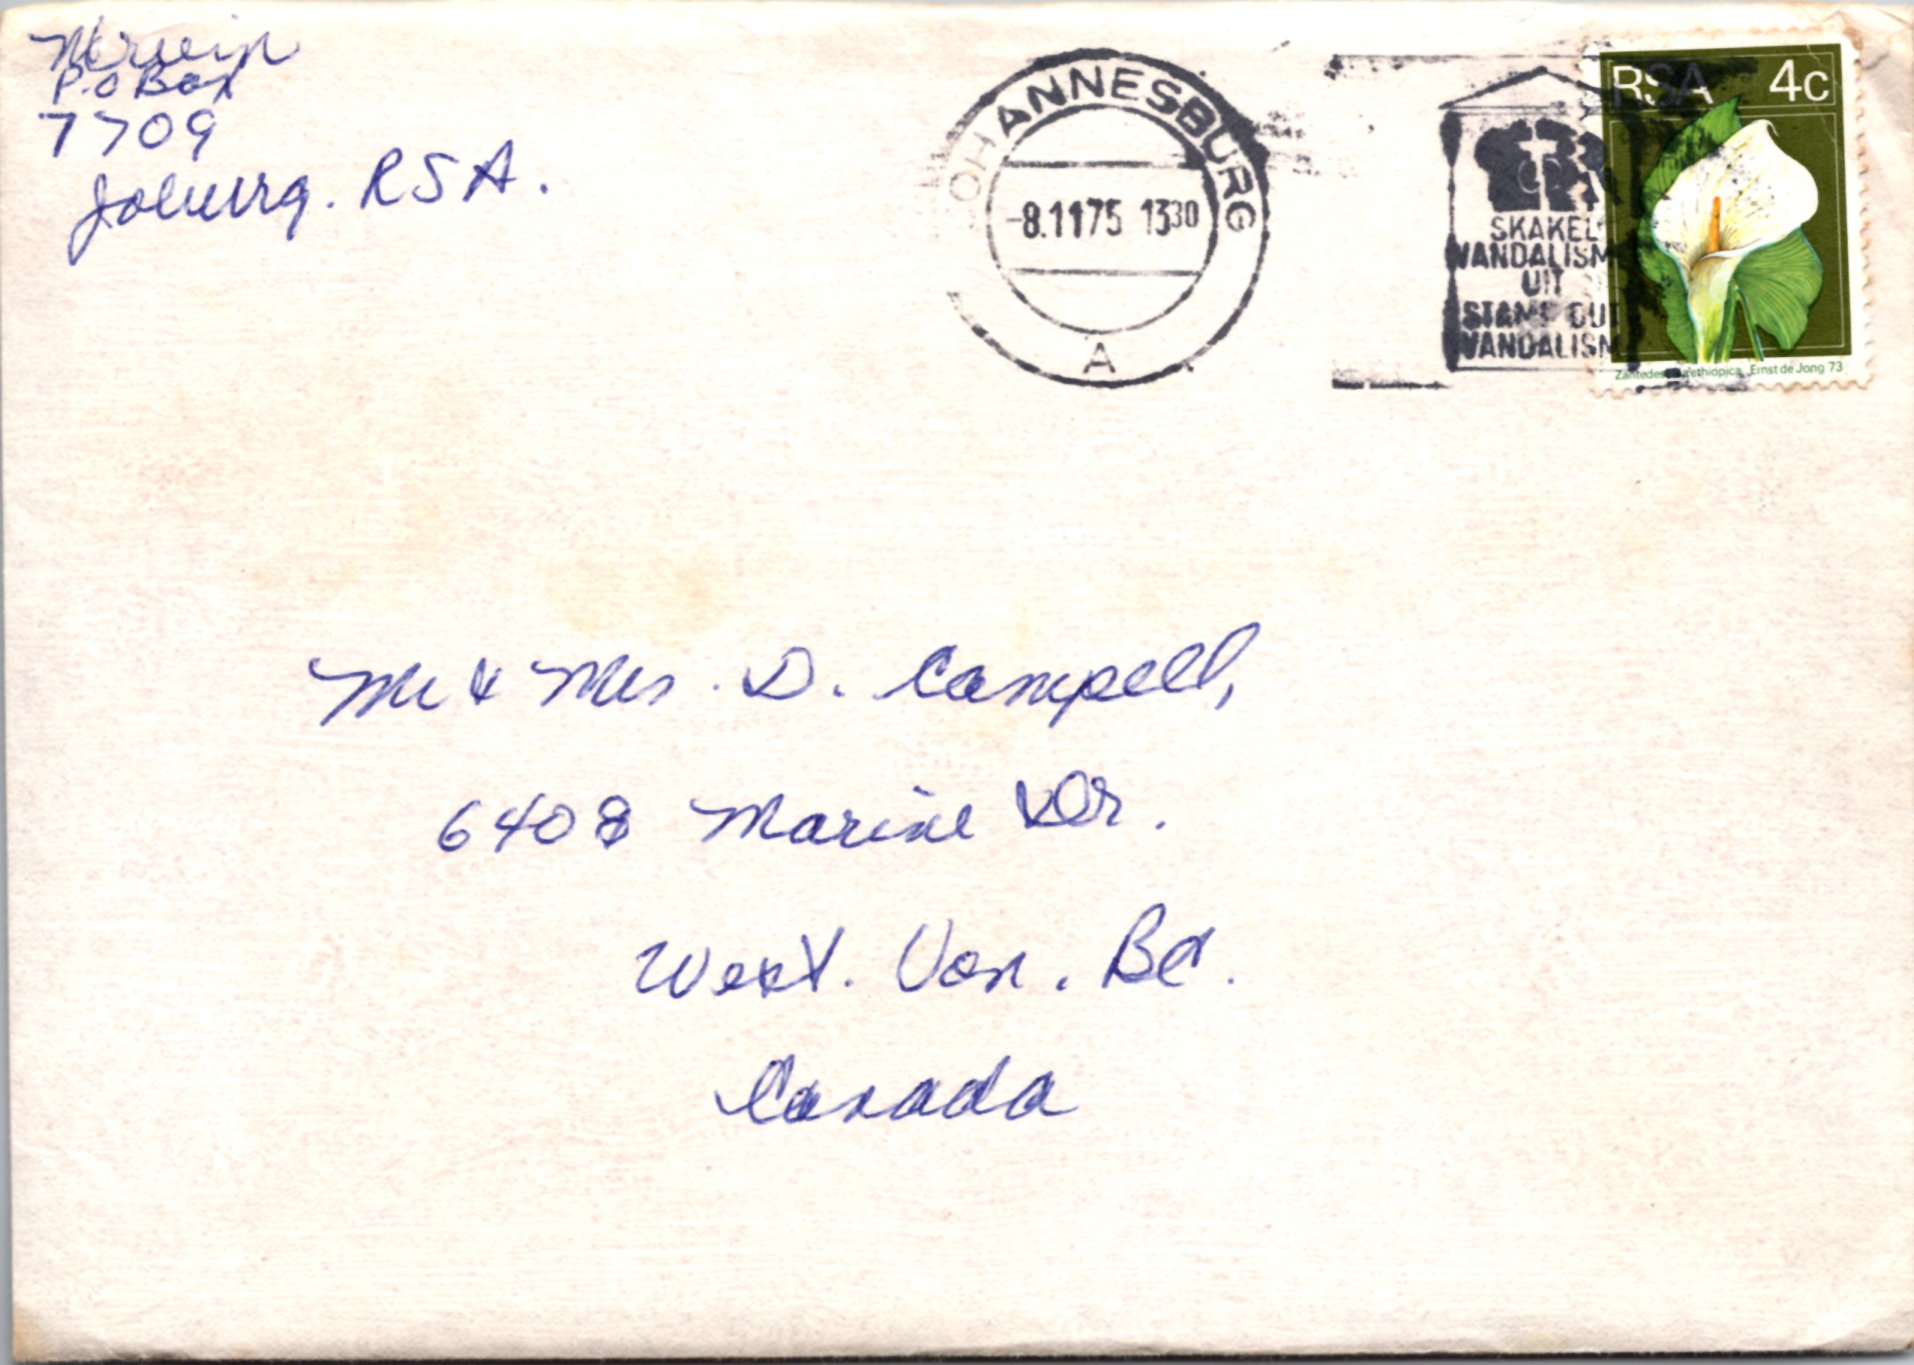 Merwin
P.O Box
7709
Joburg. RSA.
JOHANNESBURG
-8.1175 1330
A
SKAKEL
VANDALISM
UIT
STAMP OUT
VANDALISM
RSA 4c
Zantedeschia aethiopica Ernst de Jong 73
Mr & Mrs. D. Campell,
6408 Marine Dr.
West. Van. Bc.
Canada